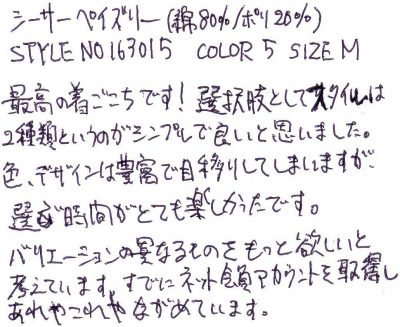 シーサーペイズリー (綿80%/ポリ20%)
STYLE NO 163015 COLOR 5 SIZE M
最高の着ごこちです! 選択肢としてスタイルは
2種類というのがシンプルで良いと思いました。
色、デザインは豊富で目移りしてしまいますが、
選ぶ時間がとても楽しかったです。
バリエーションの異なるものをもっと欲しいと
考えています。すでにネット会員アカウントを取得し
あれやこれやながめています。